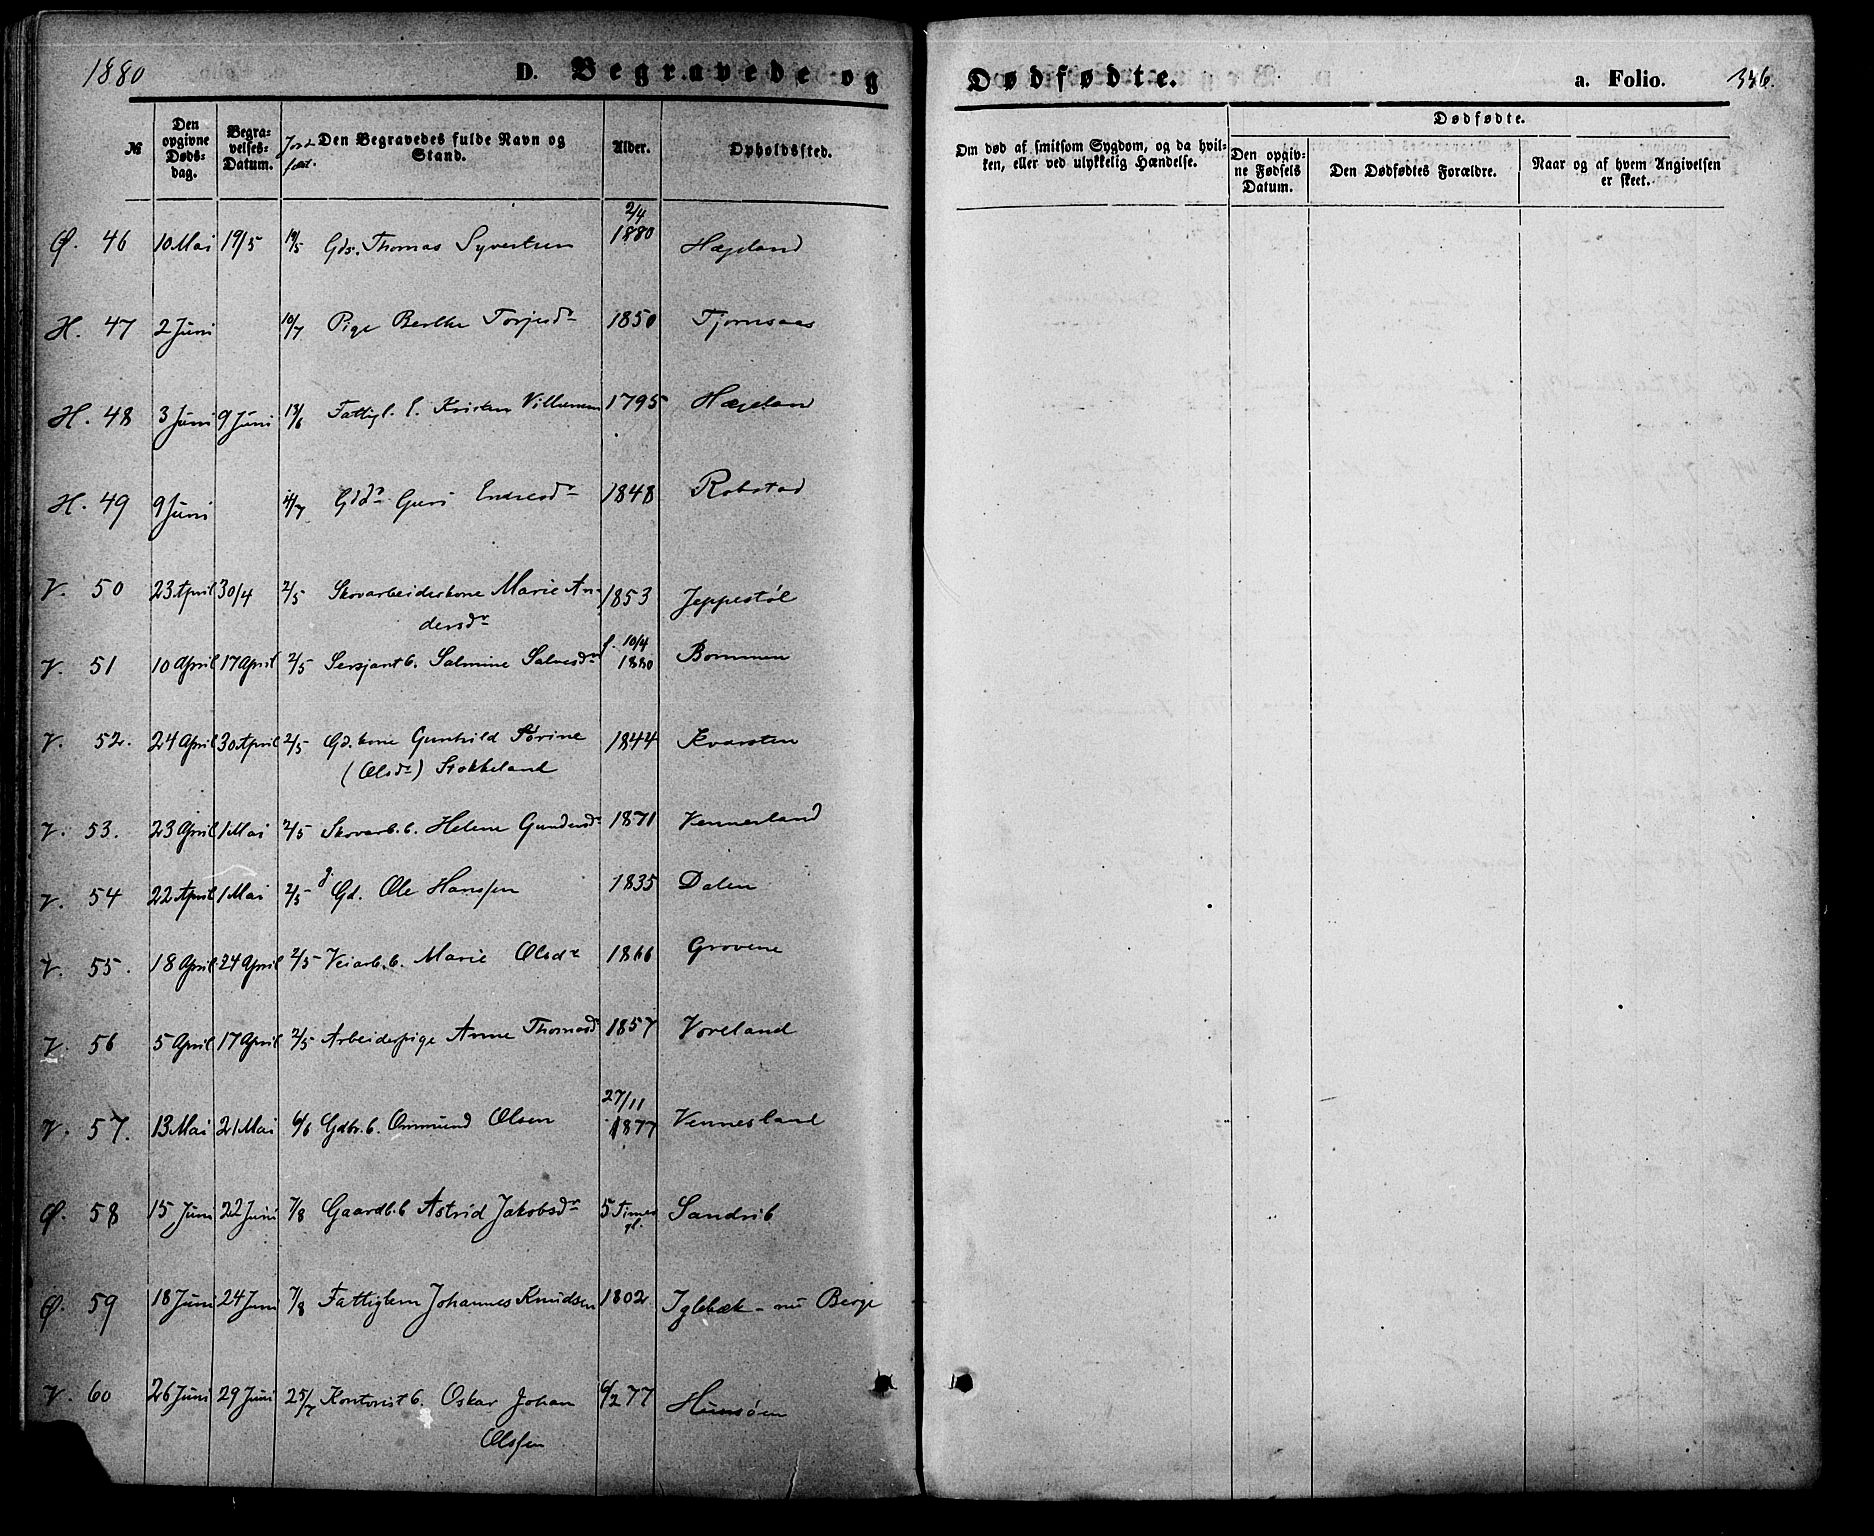 1880 D. Begravede og Dødfødte. a. Folio. 336.
№ Den opgivne Døds-dag. Begra-velses-Datum. Den Begravedes fulde Navn og Stand. Alder. Opholdssted. Om død af smitsom Sygdom, og da hvil-ken, eller ved ulykkelig Hændelse. Dødfødte. Den opgiv-ne Fødsels Datum. Den Dødfødtes Forældre. Naar og af hvem Angivelsen er skeet.
2/4
Ø. 46 10 Mai 19/5 19/5 Gds. Thomas Syvertsen 1880 Hægeland
H. 47 2 Juni 10/7 Pige Berthe Torjusdr 1850 Tjomsaas
H. 48 3 Juni 9 Juni 13/6 Fattigl. E. Kristen Villumsen 1795 Hægeland
H. 49 9 Juni 11/7 Gddr Guri Endresdr 1848 Robstad
V. 50 23 April 30/4 2/5 Skovarbeiderkone Marie An- 1853 Jeppestøl
dersdr
V. 51 10 April 17 April 2/5 Sersjant b. Salmine Salvesdr f. 10/4 1880 Bommen
V. 52. 24 April 30 April 2/5 Gd. kone Gunhild Sørine 1844 Kvarsten
(Olsdr) Stokkeland
V. 53. 23 April 1 Mai 2/5 Skovarb. b. Helene Gundersdr 1871 Vennesland
V. 54 22 April 1 Mai 2/5 Gd. Ole Hanssen 1835 Dalen
V. 55. 18 April 24 April 2/5 Veiarb. b. Marie Olsdr 1866 Grovene
V. 56 5 April 17 April 2/5 Arbeiderpige Anne Thomasdr 1857 Voreland
27/11
V. 57. 13 Mai 21 Mai 6/6 Gdbr. b. Ommund Olsen 1877 Vennesland
Ø. 58 15 Juni 22 Juni 7/8 Gaardb. b Astrid Jakobsdr 5 Timer gl. Sandrib
Ø. 59 18 Juni 24 Juni 7/8 Fattiglem Johannes Knudsen 1802 Iglebæk - nu Berge
V. 60 26 Juni 29 Juni 25/7 Kontorist b. Oskar Johan 6/2 77 Hunsøen
Olssen